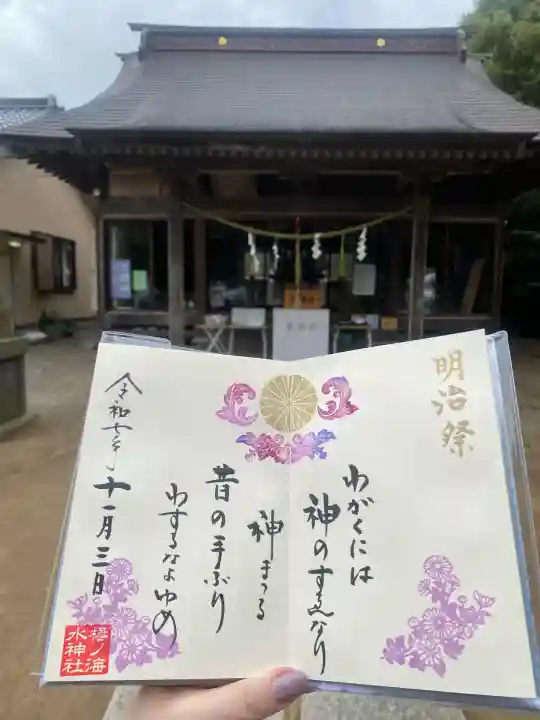 明治祭
わがくには
神のすゑなり
神まつる
昔の手ぶり
わするなよゆめ
令和七年
十一月三日
樻ノ海
水神社